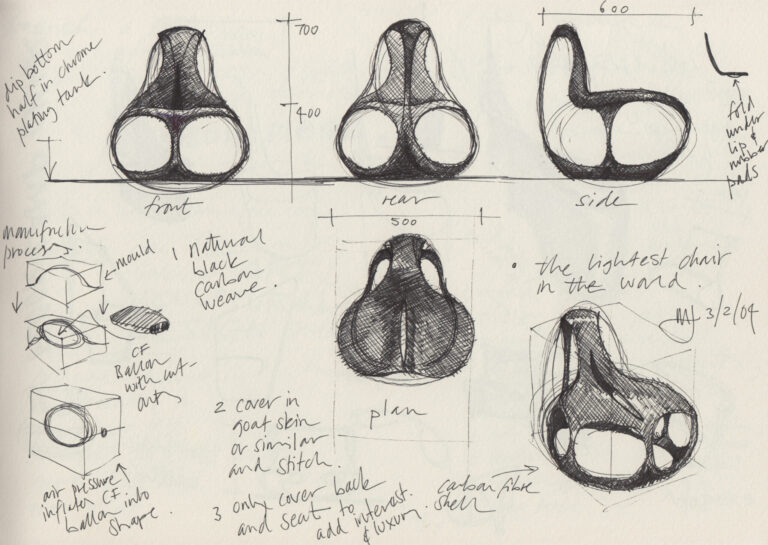 600
700
dip bottom
half in chrome
plating tank.
400
fold
under
lip &
rubber
pads
front
rear
side
500
process.
mould
1 natural
black
carbon
weave.
• the lightest chair
in the world.
3/2/04
CF
Ballon
with cut-
outs
plan
2 cover in
goat skin
or similar
and stitch.
air pressure
inflates CF
ballon into
shape.
3 only cover back
and seat to
add interest
& luxury.
carbon fibre
shell